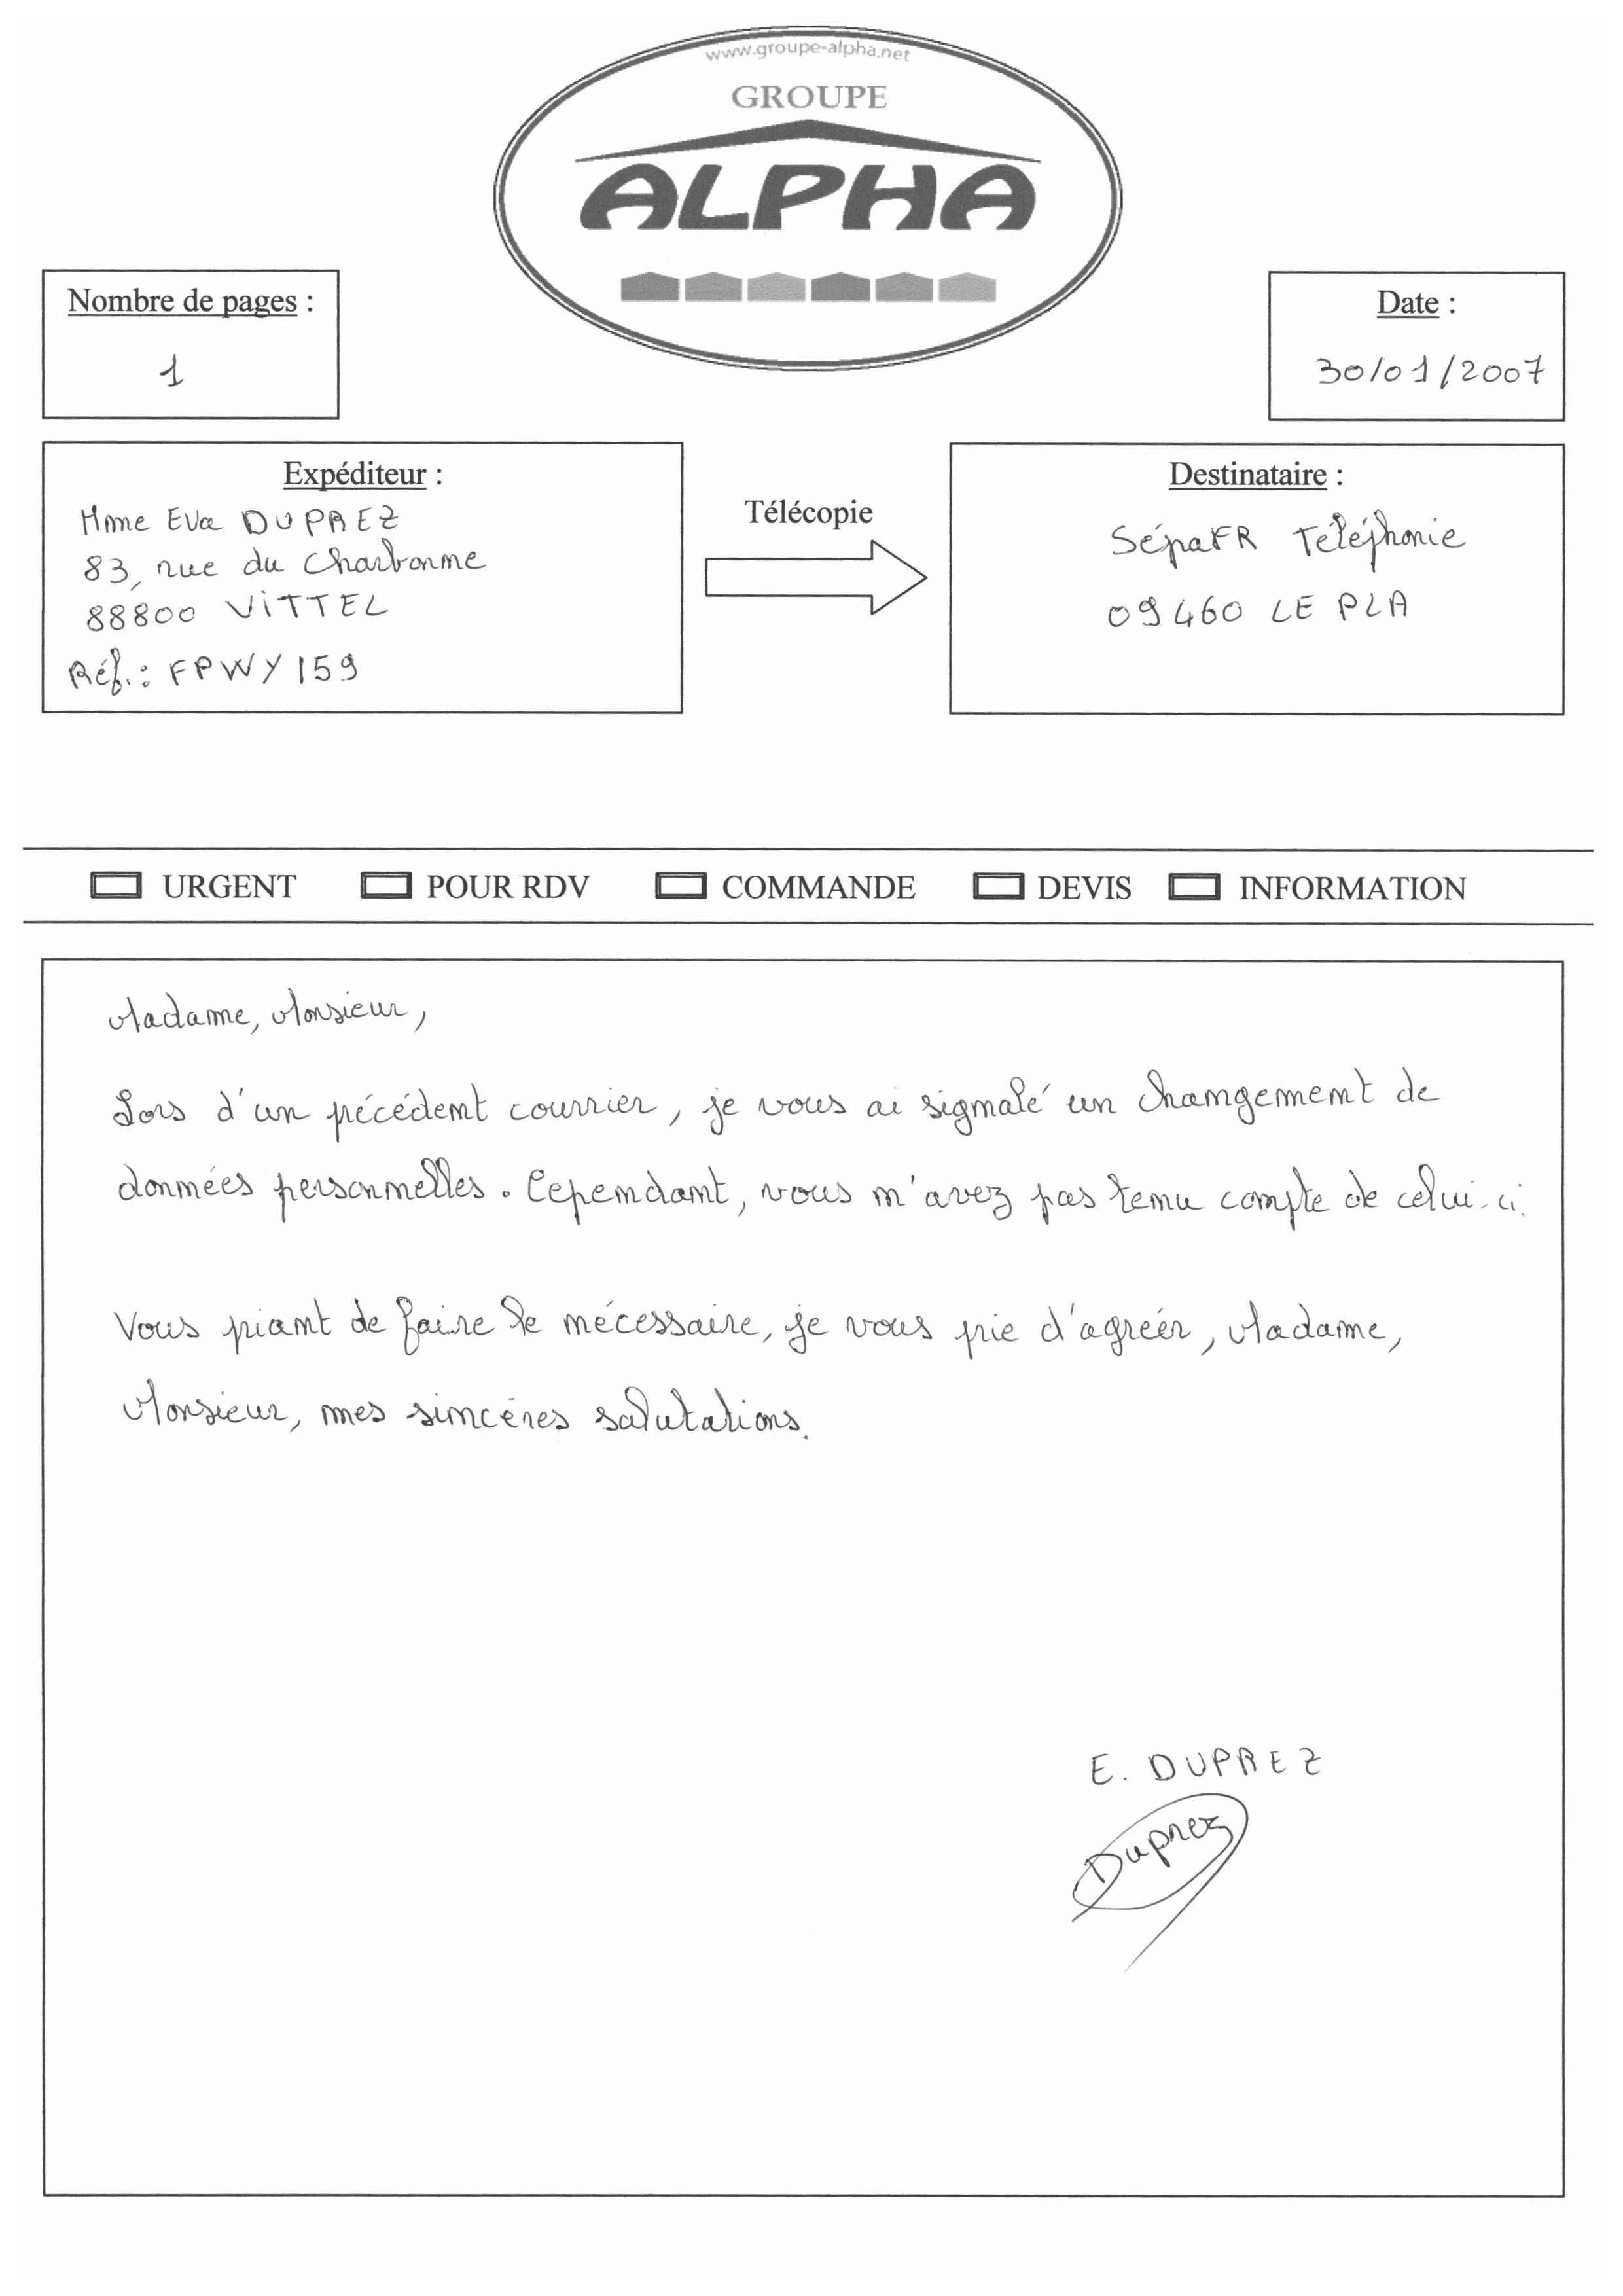 www.groupe-alpha.net
GROUPE
ALPHA
Nombre de pages :
1
Date :
30/01/2007
Expéditeur :
Mme Eva DUPREZ
83, rue du Charbonne
88800 VITTEL
Réf.: FPWY159
Télécopie
Destinataire :
SépaFR Téléphonie
09460 LE PLA
URGENT POUR RDV COMMANDE DEVIS INFORMATION
Madame, Monsieur,
Lors d'un précédent courrier, je vous ai signalé un changement de
données personnelles. Cependant, vous n'avez pas tenu compte de celui-ci.
Vous priant de faire le nécessaire, je vous prie d'agréer, Madame,
Monsieur, mes sincères salutations.
E. DUPREZ
Duprez